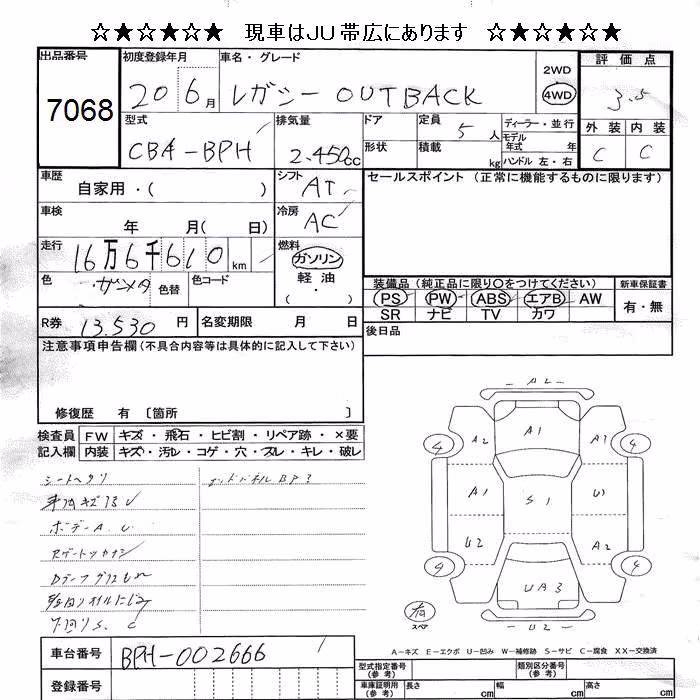 ☆★☆★☆★ 現車はJU帯広にあります ☆★☆★☆★
出品番号
7068
初度登録年月
20 6月
車名・グレード
レガシー OUTBACK
2WD
4WD
評価点
3.5
外装 内装
C C
型式
CBA-BPH
排気量
2.450cc
ドア
形状
定員
5人
積載
kg
ディーラー・並行
モデル年式 年
ハンドル 左・右
車歴
自家用・( )
シフト
AT
車検
年 月( 日)
冷房
AC
走行
16万6千610km
燃料
ガソリン
軽油
・
色
ガンメタ
色替
色コード
セールスポイント (正常に機能するものに限ります)
装備品 (純正品に限り○をつけてください)
PS PW ABS エアB AW
SR ナビ TV カワ
新車保証書
有・無
後日品
R券 13.530円
名変期限 月 日
注意事項申告欄 (不具合内容等は具体的に記入して下さい)
修復歴 有 〔箇所 〕
検査員記入欄
FW キズ・飛石・ヒビ割・リペア跡・×要
内装 キズ・汚レ・コゲ・穴・スレ・キレ・破レ
シートヘタリ
ボデーA.U
A2
A2 A1 A1
4 4
A1 S1 U1
U2 A2
4 4
UA3
U2
スペア
A−キズ E−エクボ U−凹み W−補修跡 S−サビ C−腐食 XX−交換済
車台番号
BPH-002666
登録番号
型式指定番号
(参考)
類別区分番号
(参考)
車庫証明用
(参考)
長さ cm 幅 cm 高さ cm